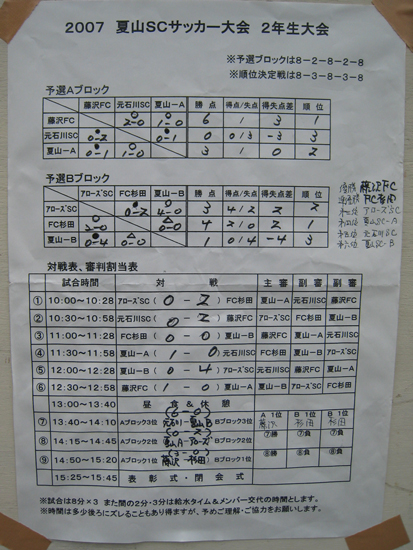 2007 夏山SCサッカー大会 2年生大会
※予選ブロックは8-2-8-2-8
※順位決定戦は8-3-8-3-8
予選Aブロック
藤沢FC 元石川SC 夏山-A 勝点 得点/失点 得失点差 順位
藤沢FC 2-0 1-0 6 3 1
元石川SC 0-2 0-1 0 0/3 -3 3
夏山-A 0-1 1-0 3 1 0 2
予選Bブロック
アローズ'SC FC杉田 夏山-B 勝点 得点/失点 得失点差 順位
アローズ'SC 0-2 4-0 3 4/2 2 2
FC杉田 2-0 0-0 4 2/0 2 1
夏山-B 0-4 0-0 1 0/4 -4 3
優勝 藤沢FC
準優勝 FC杉田
アローズSC
夏山SC-A
元石川SC
夏山SC-B
対戦表、審判割当表
試合時間 対 戦 主審 副審 副審
① 10:00～10:28 アローズSC ( 0 - 2 ) FC杉田 夏山-A 元石川SC 藤沢FC
② 10:30～10:58 元石川SC ( 0 - 2 ) 藤沢FC 夏山-B FC杉田 アローズ'SC
③ 11:00～11:28 FC杉田 ( 0 - 0 ) 夏山-B 藤沢FC 夏山-A 元石川SC
④ 11:30～11:58 夏山-A ( 1 - 0 ) 元石川SC アローズ'SC 夏山-B FC杉田
⑤ 12:00～12:28 夏山-B ( 0 - 4 ) アローズ'SC 元石川SC 藤沢FC 夏山-A
⑥ 12:30～12:58 藤沢FC ( 1 - 0 ) 夏山-A FC杉田 アローズ'SC 夏山-B
13:00～13:40 昼 食 & 休 憩
⑦ 13:40～14:10 Aブロック3位 元石川 - 夏山B Bブロック3位 A 1位 藤沢 B 1位 杉田 B 1位 杉田
⑧ 14:15～14:45 Aブロック2位 夏山A - アローズ Bブロック2位 ⑦勝 ⑦負 ⑦負
⑨ 14:50～15:20 Aブロック1位 藤沢 - 杉田 Bブロック1位 ⑧勝 ⑧負 ⑧負
15:25～15:45 表 彰 式 ・ 閉 会 式
※試合は8分×3 また間の2分・3分は給水タイム&メンバー交代の時間とします。
※時間は多少後ろにズレることもあり得ますが、予めご理解・ご協力をお願いします。